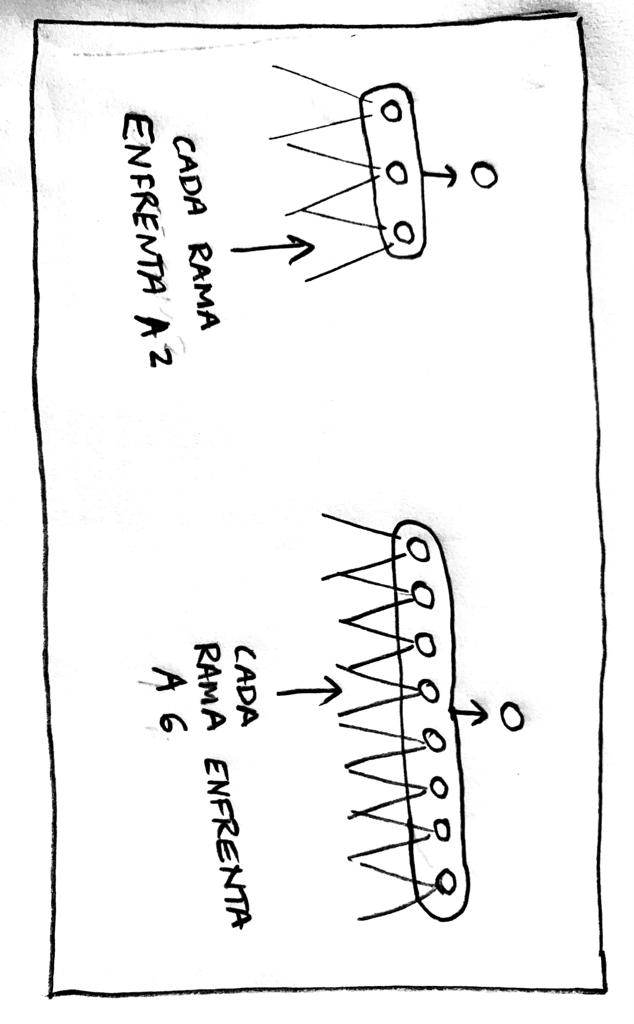 CADA RAMA
ENFRENTA A 2
CADA
RAMA ENFRENTA
A 6